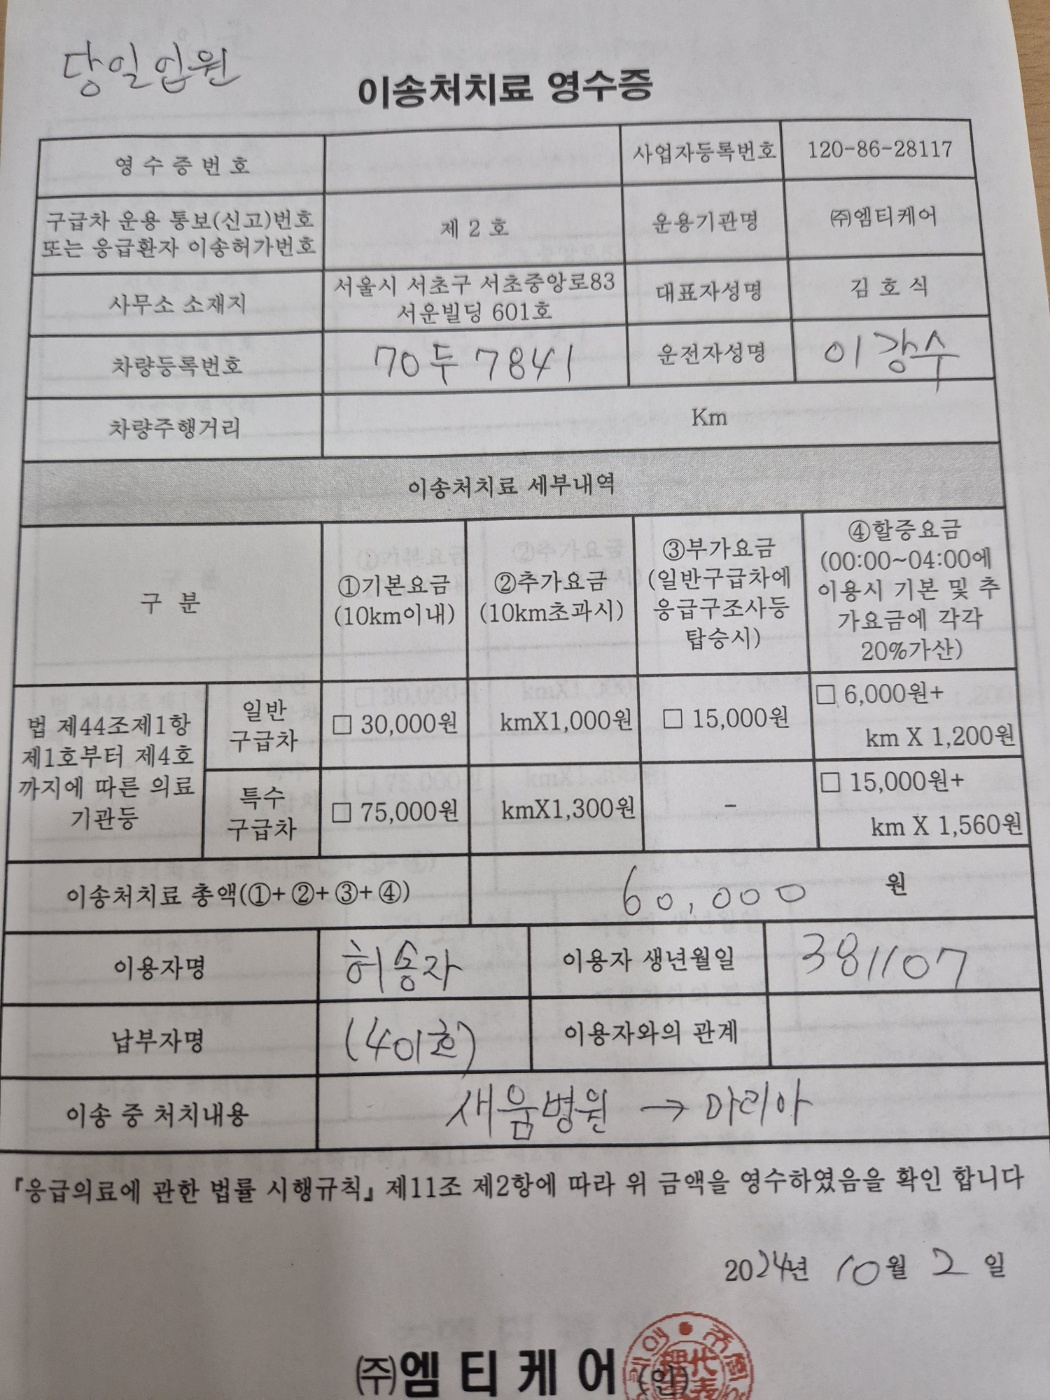 당일입원
이송처치료 영수증
영수증번호
사업자등록번호 120-86-28117
구급차 운용 통보(신고)번호
또는 응급환자 이송허가번호
제 2 호
운용기관명 ㈜엠티케어
사무소 소재지
서울시 서초구 서초중앙로83
서운빌딩 601호
대표자성명 김 호 식
차량등록번호 70두 7841 운전자성명 이강수
차량주행거리 Km
이송처치료 세부내역
구 분
①기본요금
(10km이내)
②추가요금
(10km초과시)
③부가요금
(일반구급차에
응급구조사등
탑승시)
④할증요금
(00:00~04:00에
이용시 기본 및 추
가요금에 각각
20%가산)
법 제44조제1항
제1호부터 제4호
까지에 따른 의료
기관등
일반
구급차
□ 30,000원 kmX1,000원 □ 15,000원
□ 6,000원+
km X 1,200원
특수
구급차
□ 75,000원 kmX1,300원 -
□ 15,000원+
km X 1,560원
이송처치료 총액(①+②+③+④) 60,000 원
이용자명 허송자 이용자 생년월일 381107
납부자명 (401호) 이용자와의 관계
이송 중 처치내용 새움병원 → 마리아
『응급의료에 관한 법률 시행규칙』 제11조 제2항에 따라 위 금액을 영수하였음을 확인 합니다
2024년 10월 2 일
㈜엠티케어 (인)